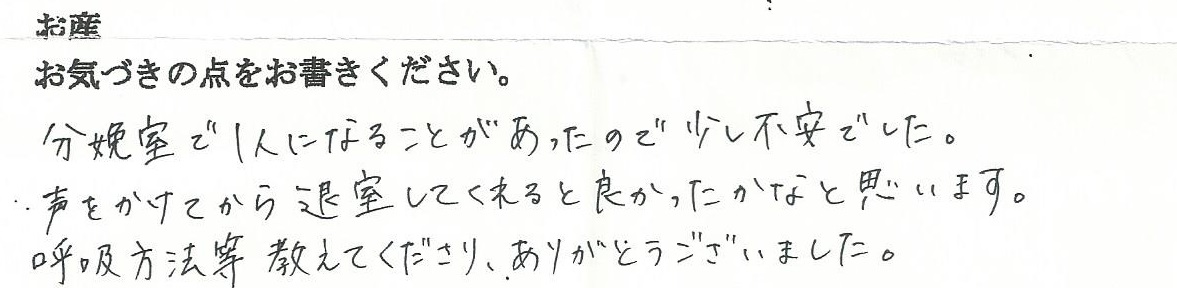 お産
お気づきの点をお書きください。
分娩室で1人になることがあったので少し不安でした。
声をかけてから退室してくれると良かったかなと思います。
呼吸方法等教えてくださり、ありがとうございました。